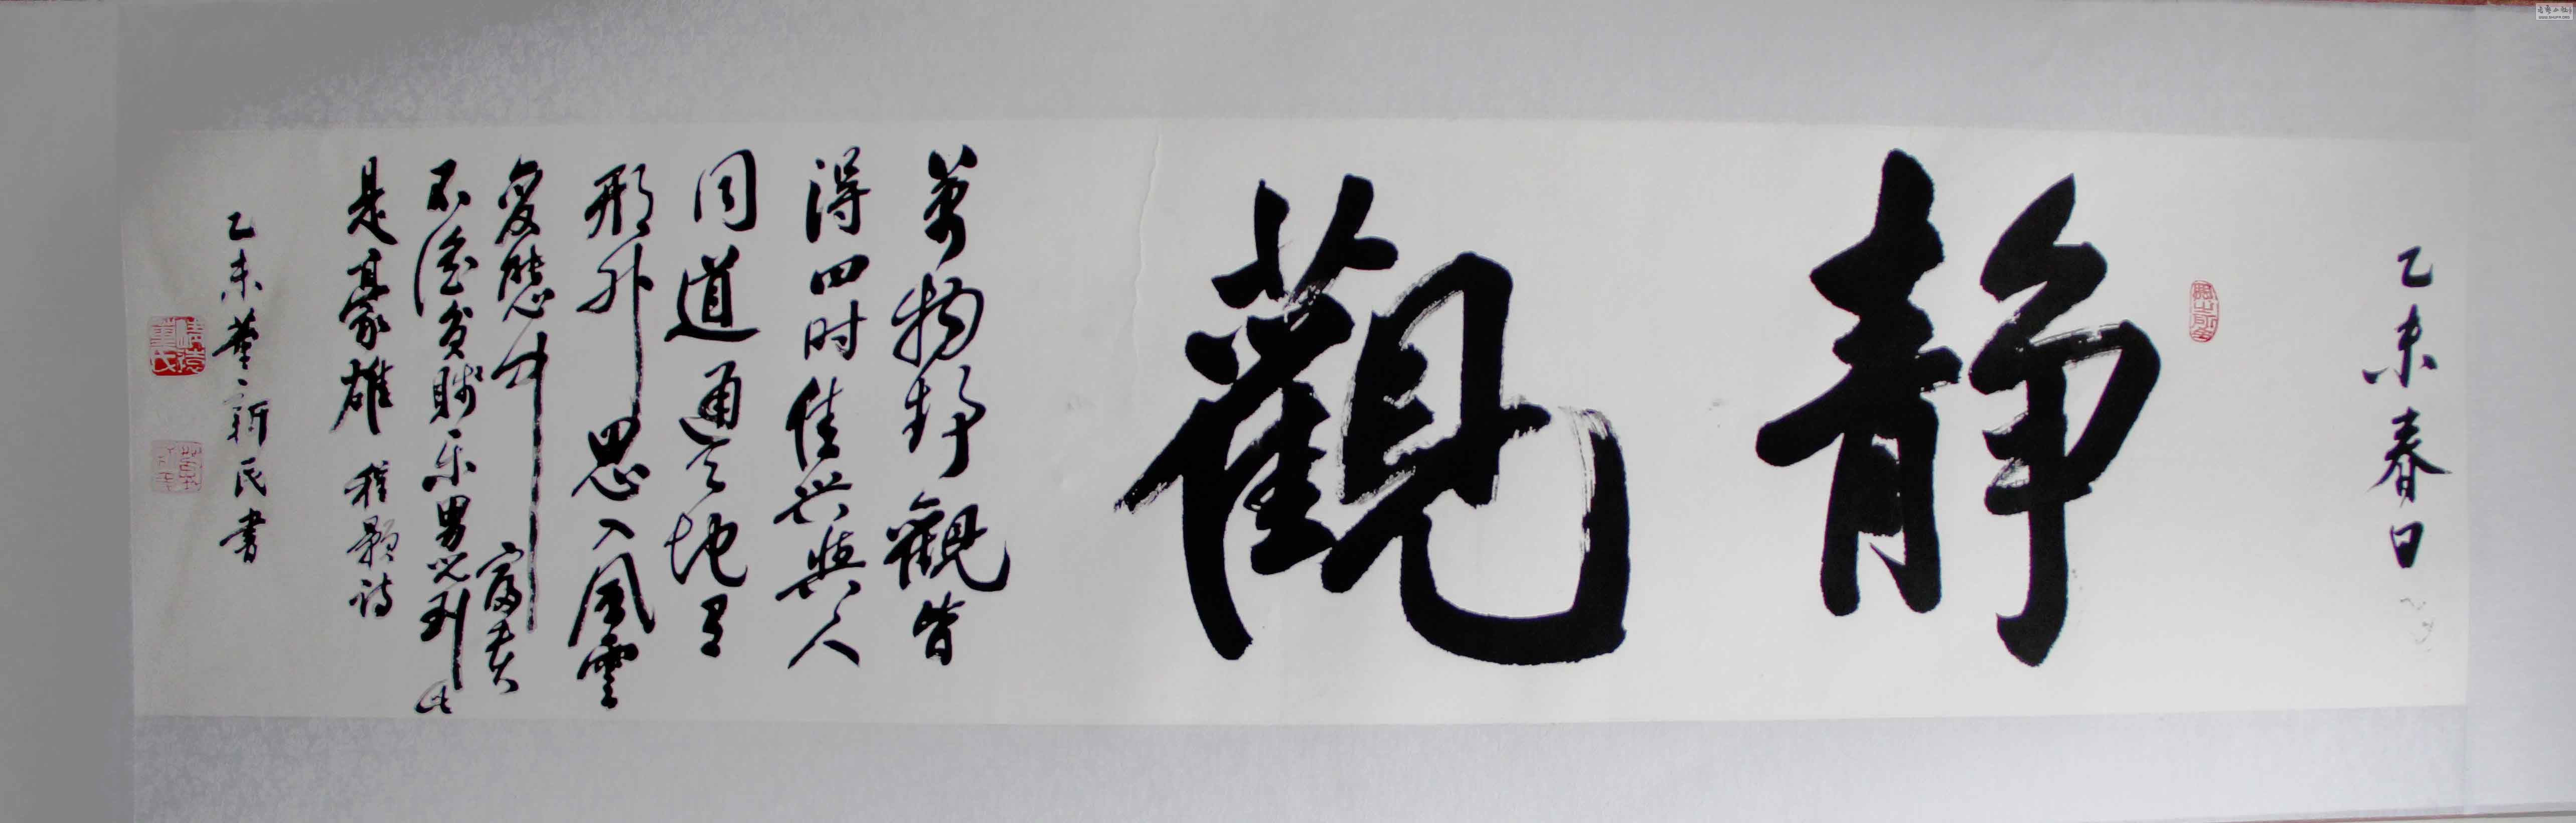 乙未春日
静觀
萬物静觀皆
得四时佳兴與人
同道通天地有
形外思入風雲
變態中富贵
不淫貧賤乐男儿到此
是豪雄 程颢诗
乙未董新民書